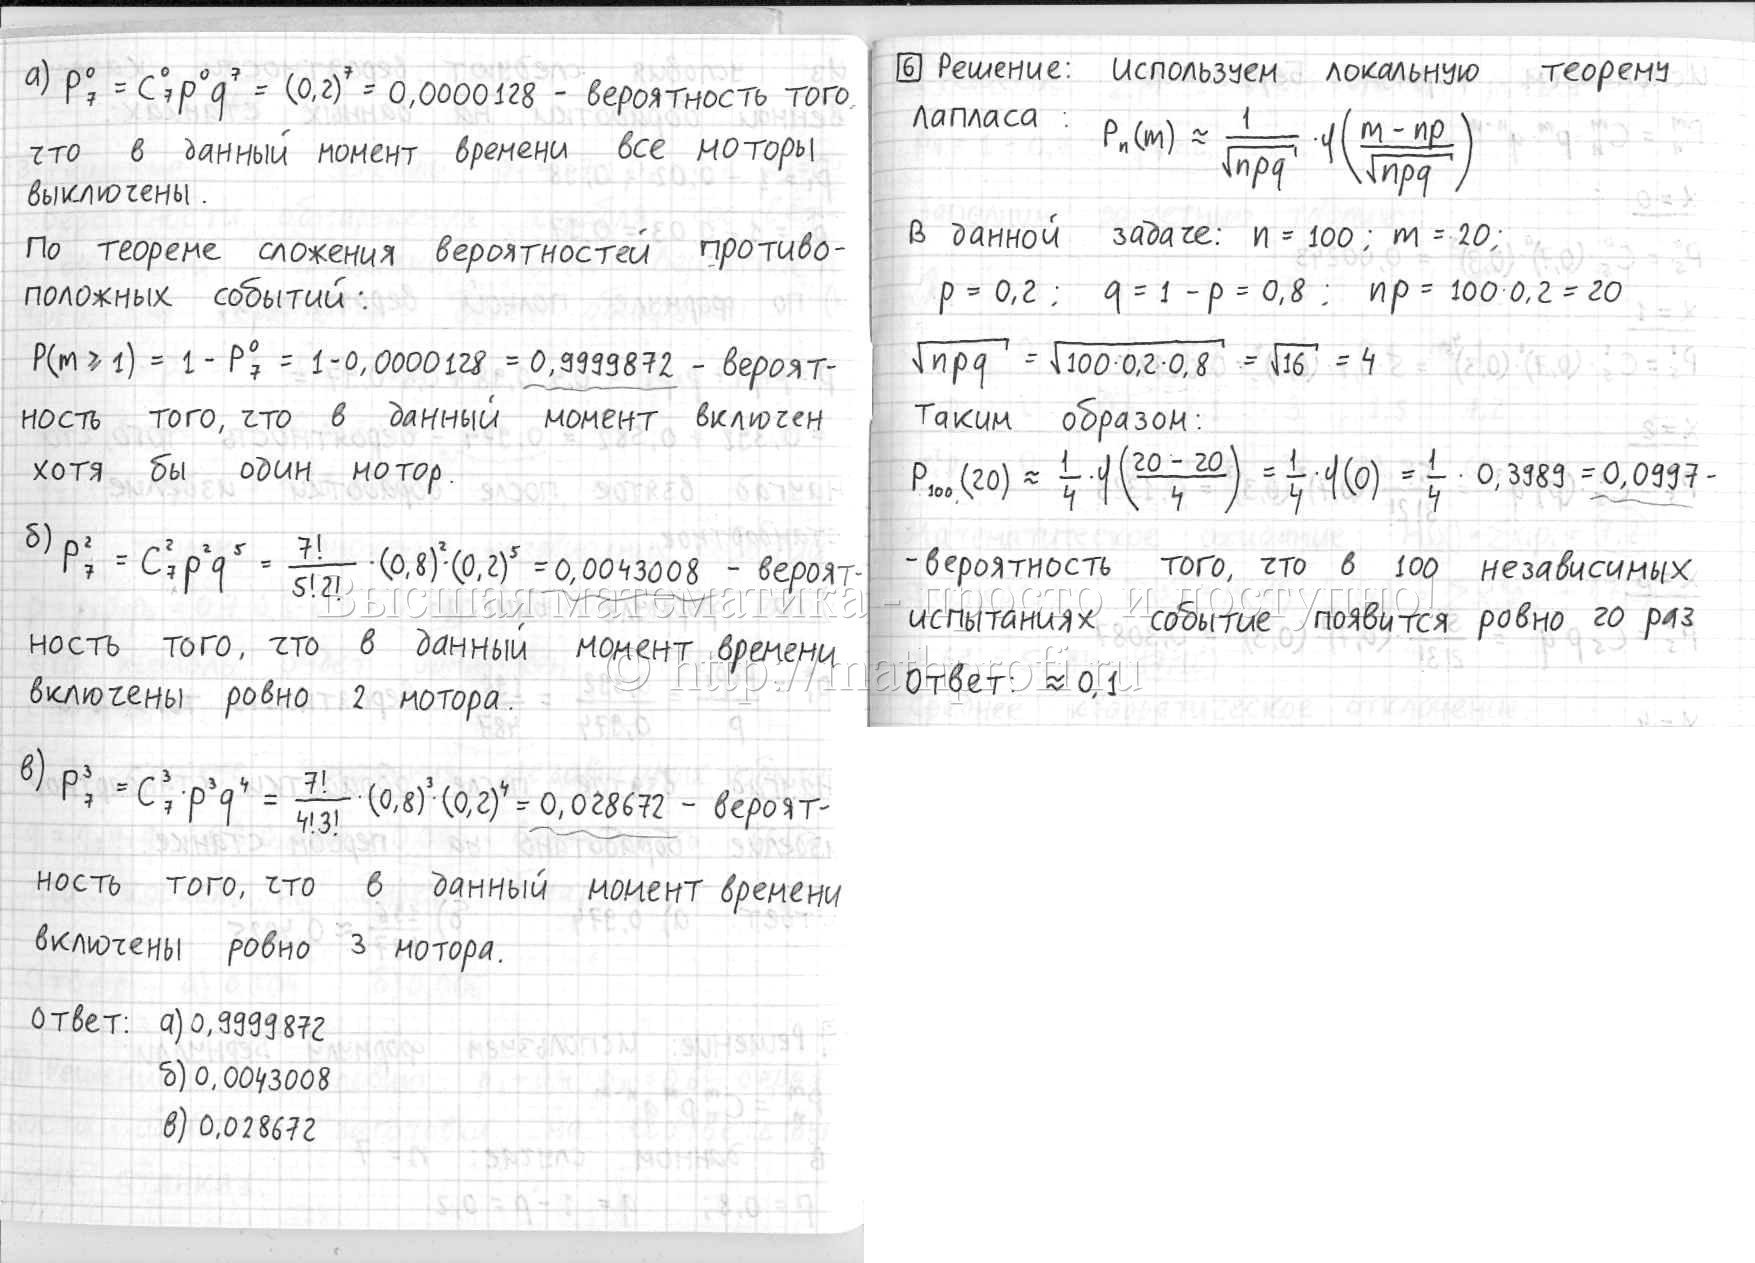 а) P₇⁰ = C₇⁰p⁰q⁷ = (0,2)⁷ = 0,0000128 - вероятность того,
что в данный момент времени все моторы
выключены.
По теореме сложения вероятностей противо-
положных событий:
P(m ⩾ 1) = 1 - P₇⁰ = 1-0,0000128 = 0,9999872 - вероят-
ность того, что в данный момент включен
хотя бы один мотор.
б) P₇² = C₇²p²q⁵ = 7!/(5!2!) · (0,8)² · (0,2)⁵ = 0,0043008 - вероят-
ность того, что в данный момент времени
включены ровно 2 мотора.
в) P₇³ = C₇³·p³q⁴ = 7!/(4!3!) · (0,8)³ · (0,2)⁴ = 0,028672 - вероят-
ность того, что в данный момент времени
включены ровно 3 мотора.
Ответ: а) 0,9999872
б) 0,0043008
в) 0,028672
6 Решение: Используем локальную теорему
Лапласа: Pₙ(m) ≈ 1/√npq · φ((m - np)/√npq)
В данной задаче: n = 100; m = 20;
p = 0,2; q = 1 - p = 0,8; np = 100·0,2 = 20
√npq = √100·0,2·0,8 = √16 = 4
Таким образом:
P₁₀₀(20) ≈ 1/4 · φ((20 - 20)/4) = 1/4 · φ(0) = 1/4 · 0,3989 = 0,0997 -
- вероятность того, что в 100 независимых
испытаниях событие появится ровно 20 раз
Ответ: ≈ 0,1
Высшая математика - просто и доступно!
© http://mathprofi.ru